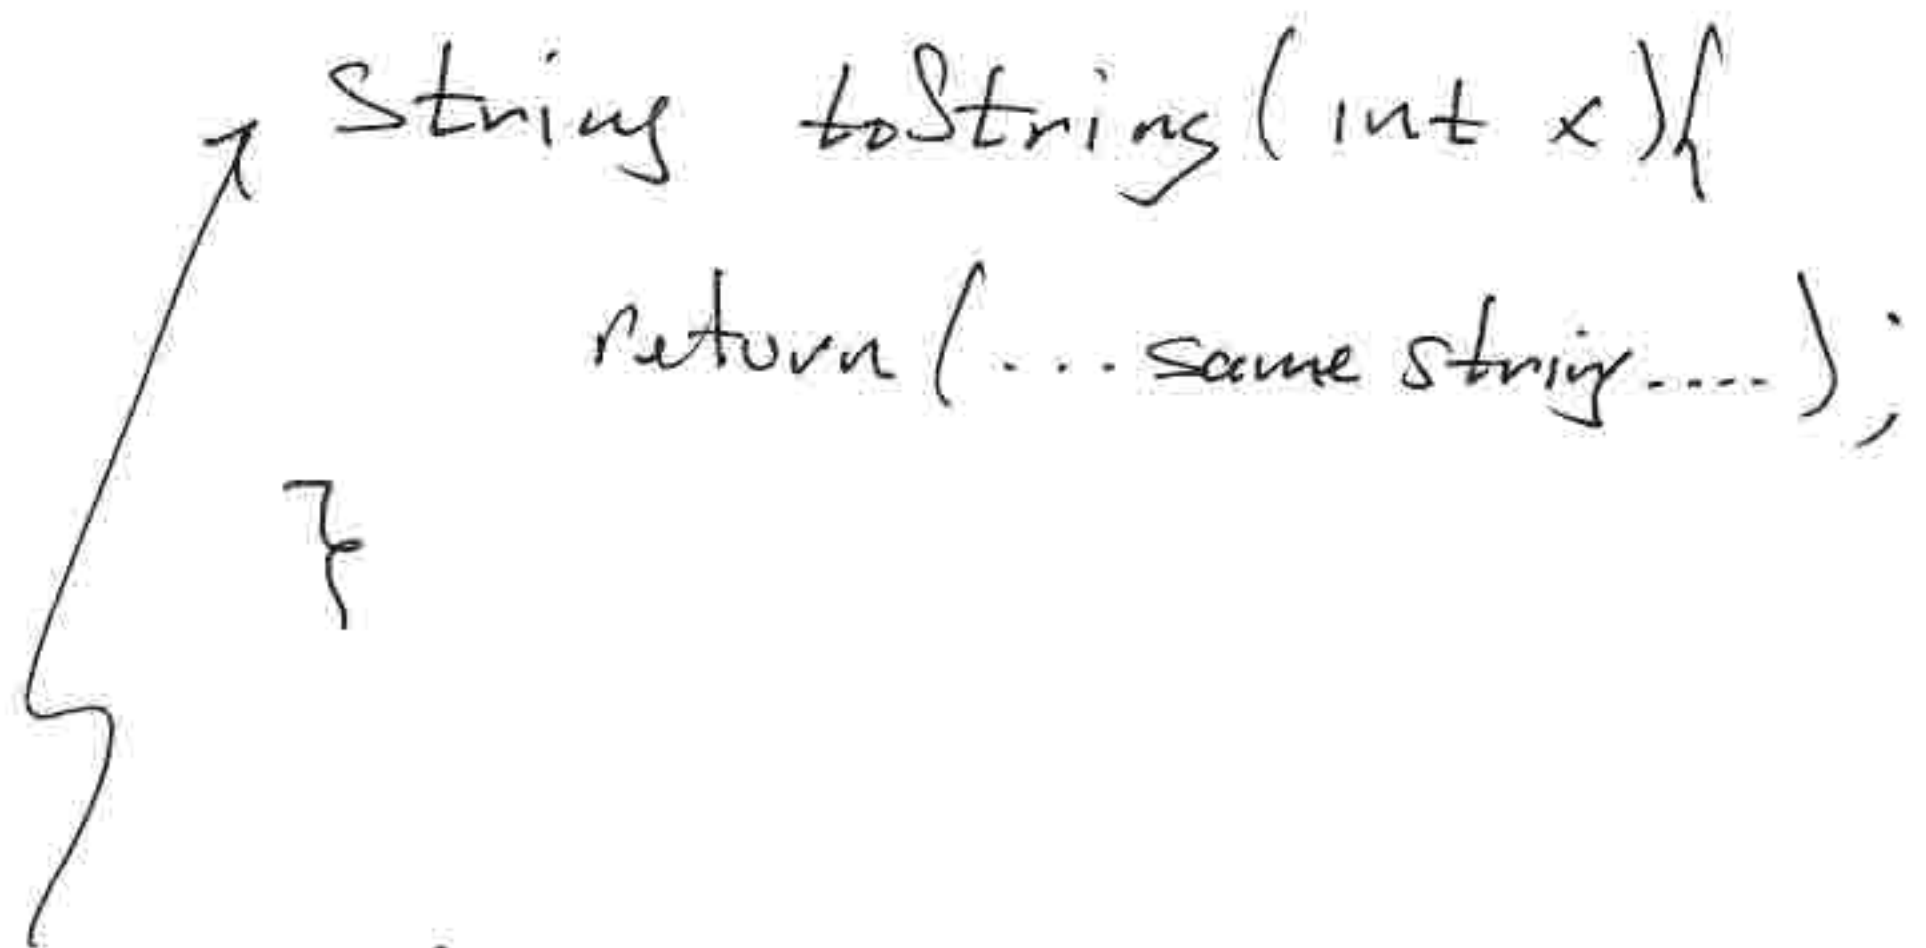 String toString( int x ){
return (.... same string.....);
}